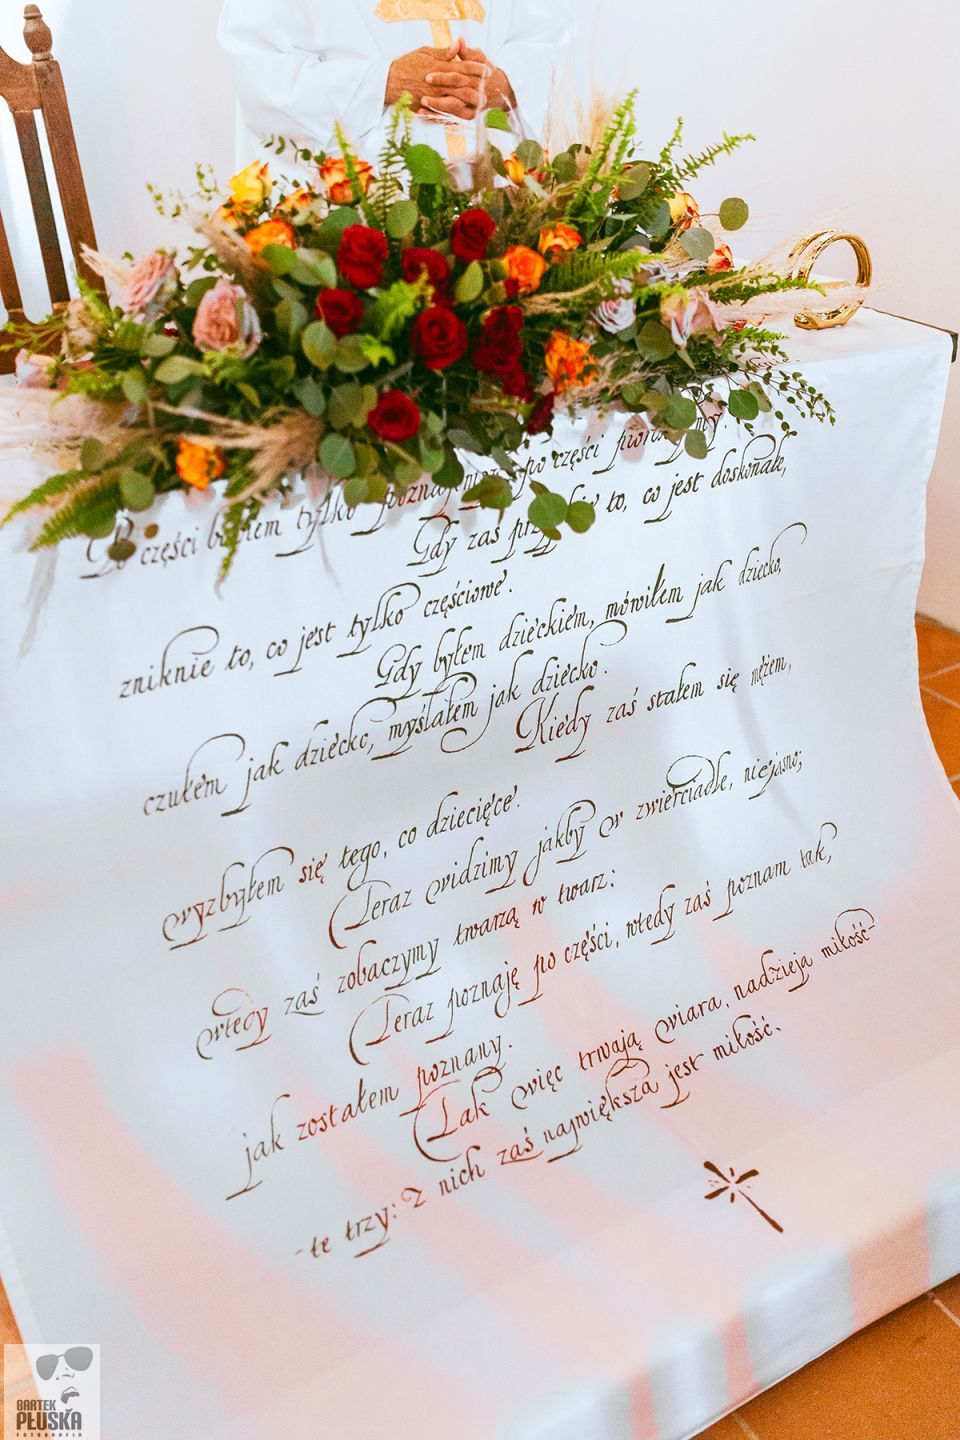 Po części bowiem tylko poznajemy, po części prorokujemy.
Gdy zaś przyjdzie to, co jest doskonałe,
zniknie to, co jest tylko częściowe.
Gdy byłem dzieckiem, mówiłem jak dziecko,
czułem jak dziecko, myślałem jak dziecko.
Kiedy zaś stałem się mężem,
wyzbyłem się tego, co dziecięce.
Teraz widzimy jakby w zwierciadle, niejasno;
wtedy zaś zobaczymy twarzą w twarz:
Teraz poznaję po części, wtedy zaś poznam tak,
jak zostałem poznany.
Tak więc trwają wiara, nadzieja miłość-
-te trzy: z nich zaś największa jest miłość.
BARTEK
PŁUSKA
FOTOGRAFIA